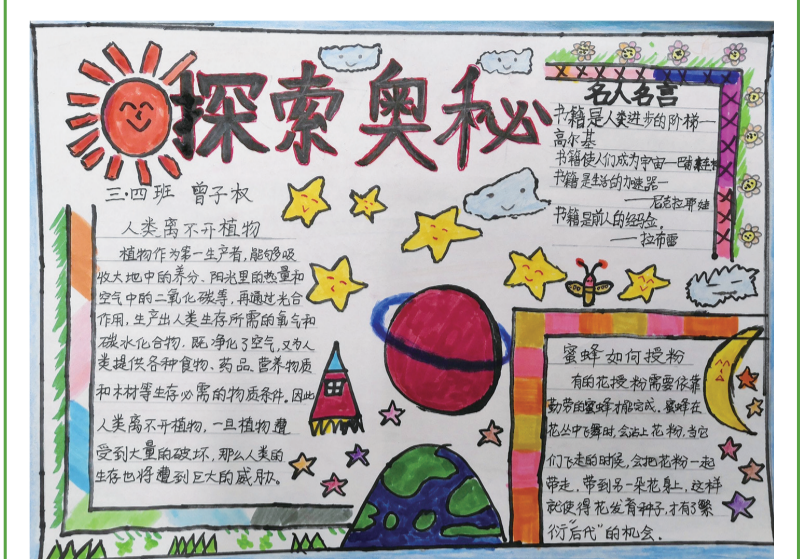 探索奥秘
三·四班 曾子权
人类离不开植物
植物作为第一生产者,能够吸
收大地中的养分、阳光里的热量和
空气中的二氧化碳等,再通过光合
作用,生产出人类生存所需的氧气和
碳水化合物,既净化了空气,又为人
类提供各种食物、药品、营养物质
和木材等生存必需的物质条件。因此
人类离不开植物,一旦植物遭
受到大量的破坏,那么人类的
生存也将遭到巨大的威胁。
名人名言
书籍是人类进步的阶梯一
高尔基
书籍使人们成为宇宙一
书籍是生活的加速器一
——尼克拉耶娃
书籍是前人的经验。
——拉布雷
蜜蜂如何授粉
有的花授粉需要依靠
勤劳的蜜蜂才能完成。蜜蜂在
花丛中飞舞时,会沾上花粉,当它
们飞走的时候,会把花粉一起
带走,带到另一朵花身上,这样
就使得花发育种子,才有了繁
衍“后代”的机会.